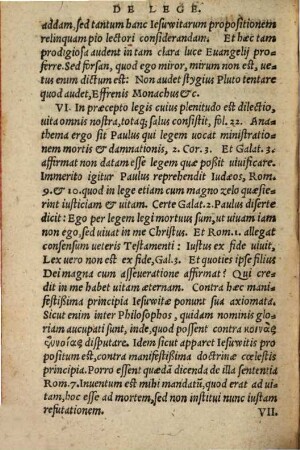 DE LEGE.
addam, sed tantum hanc Iesuwitarum propositionem
relinquam pio lectori considerandam. Et hæc tam
prodigiosa audent in tam clara luce Euangelij pro-
ferre. Sed forsan, quod ego miror, mirum non est, ue-
tus enim dictum est: Non audet stygius Pluto tentare
quod audet, Effrenis Monachus &c.
VI. In præcepto legis cuius plenitudo est dilectio,
uita omnis nostra, totaq; salus consistit, fol. 22. Ana-
thema ergo sit Paulus qui legem uocat ministratio-
nem mortis & damnationis, 2. Cor. 3. Et Galat. 3.
affirmat non datam esse legem quæ poßit uiuificare.
Immerito igitur Paulus reprehendit Iudæos, Rom.
9. & 10. quod in lege etiam cum magno zelo quæsie-
rint iusticiam & uitam. Certe Galat. 2. Paulus diserte
dicit: Ego per legem legi mortuus sum, ut uiuam iam
non ego, sed uiuat in me Christus. Et Rom. 1. allegat
consensum ueteris Testamenti: Iustus ex fide uiuit,
Lex uero non est ex fide, Gal. 3. Et quoties ipse filius
Dei magna cum asseueratione affirmat? Qui cre-
dit in me habet uitam æternam. Contra hæc mani-
festißima principia Iesuwitæ ponunt sua axiomata.
Sicut enim inter Philosophos, quidam nominis glo-
riam aucupati sunt, inde, quod possent contra κοινὰς
ἐννοίας disputare. Idem sicut apparet Iesuwitis pro
positum est, contra manifestißima doctrinæ cœlestis
principia. Porro essent quædã dicenda de illa sententia
Rom. 7. Inuentum est mihi mandatũ, quod erat ad ui-
tam, hoc esse ad mortem, sed non institui nunc iustam
refutationem.
VII.